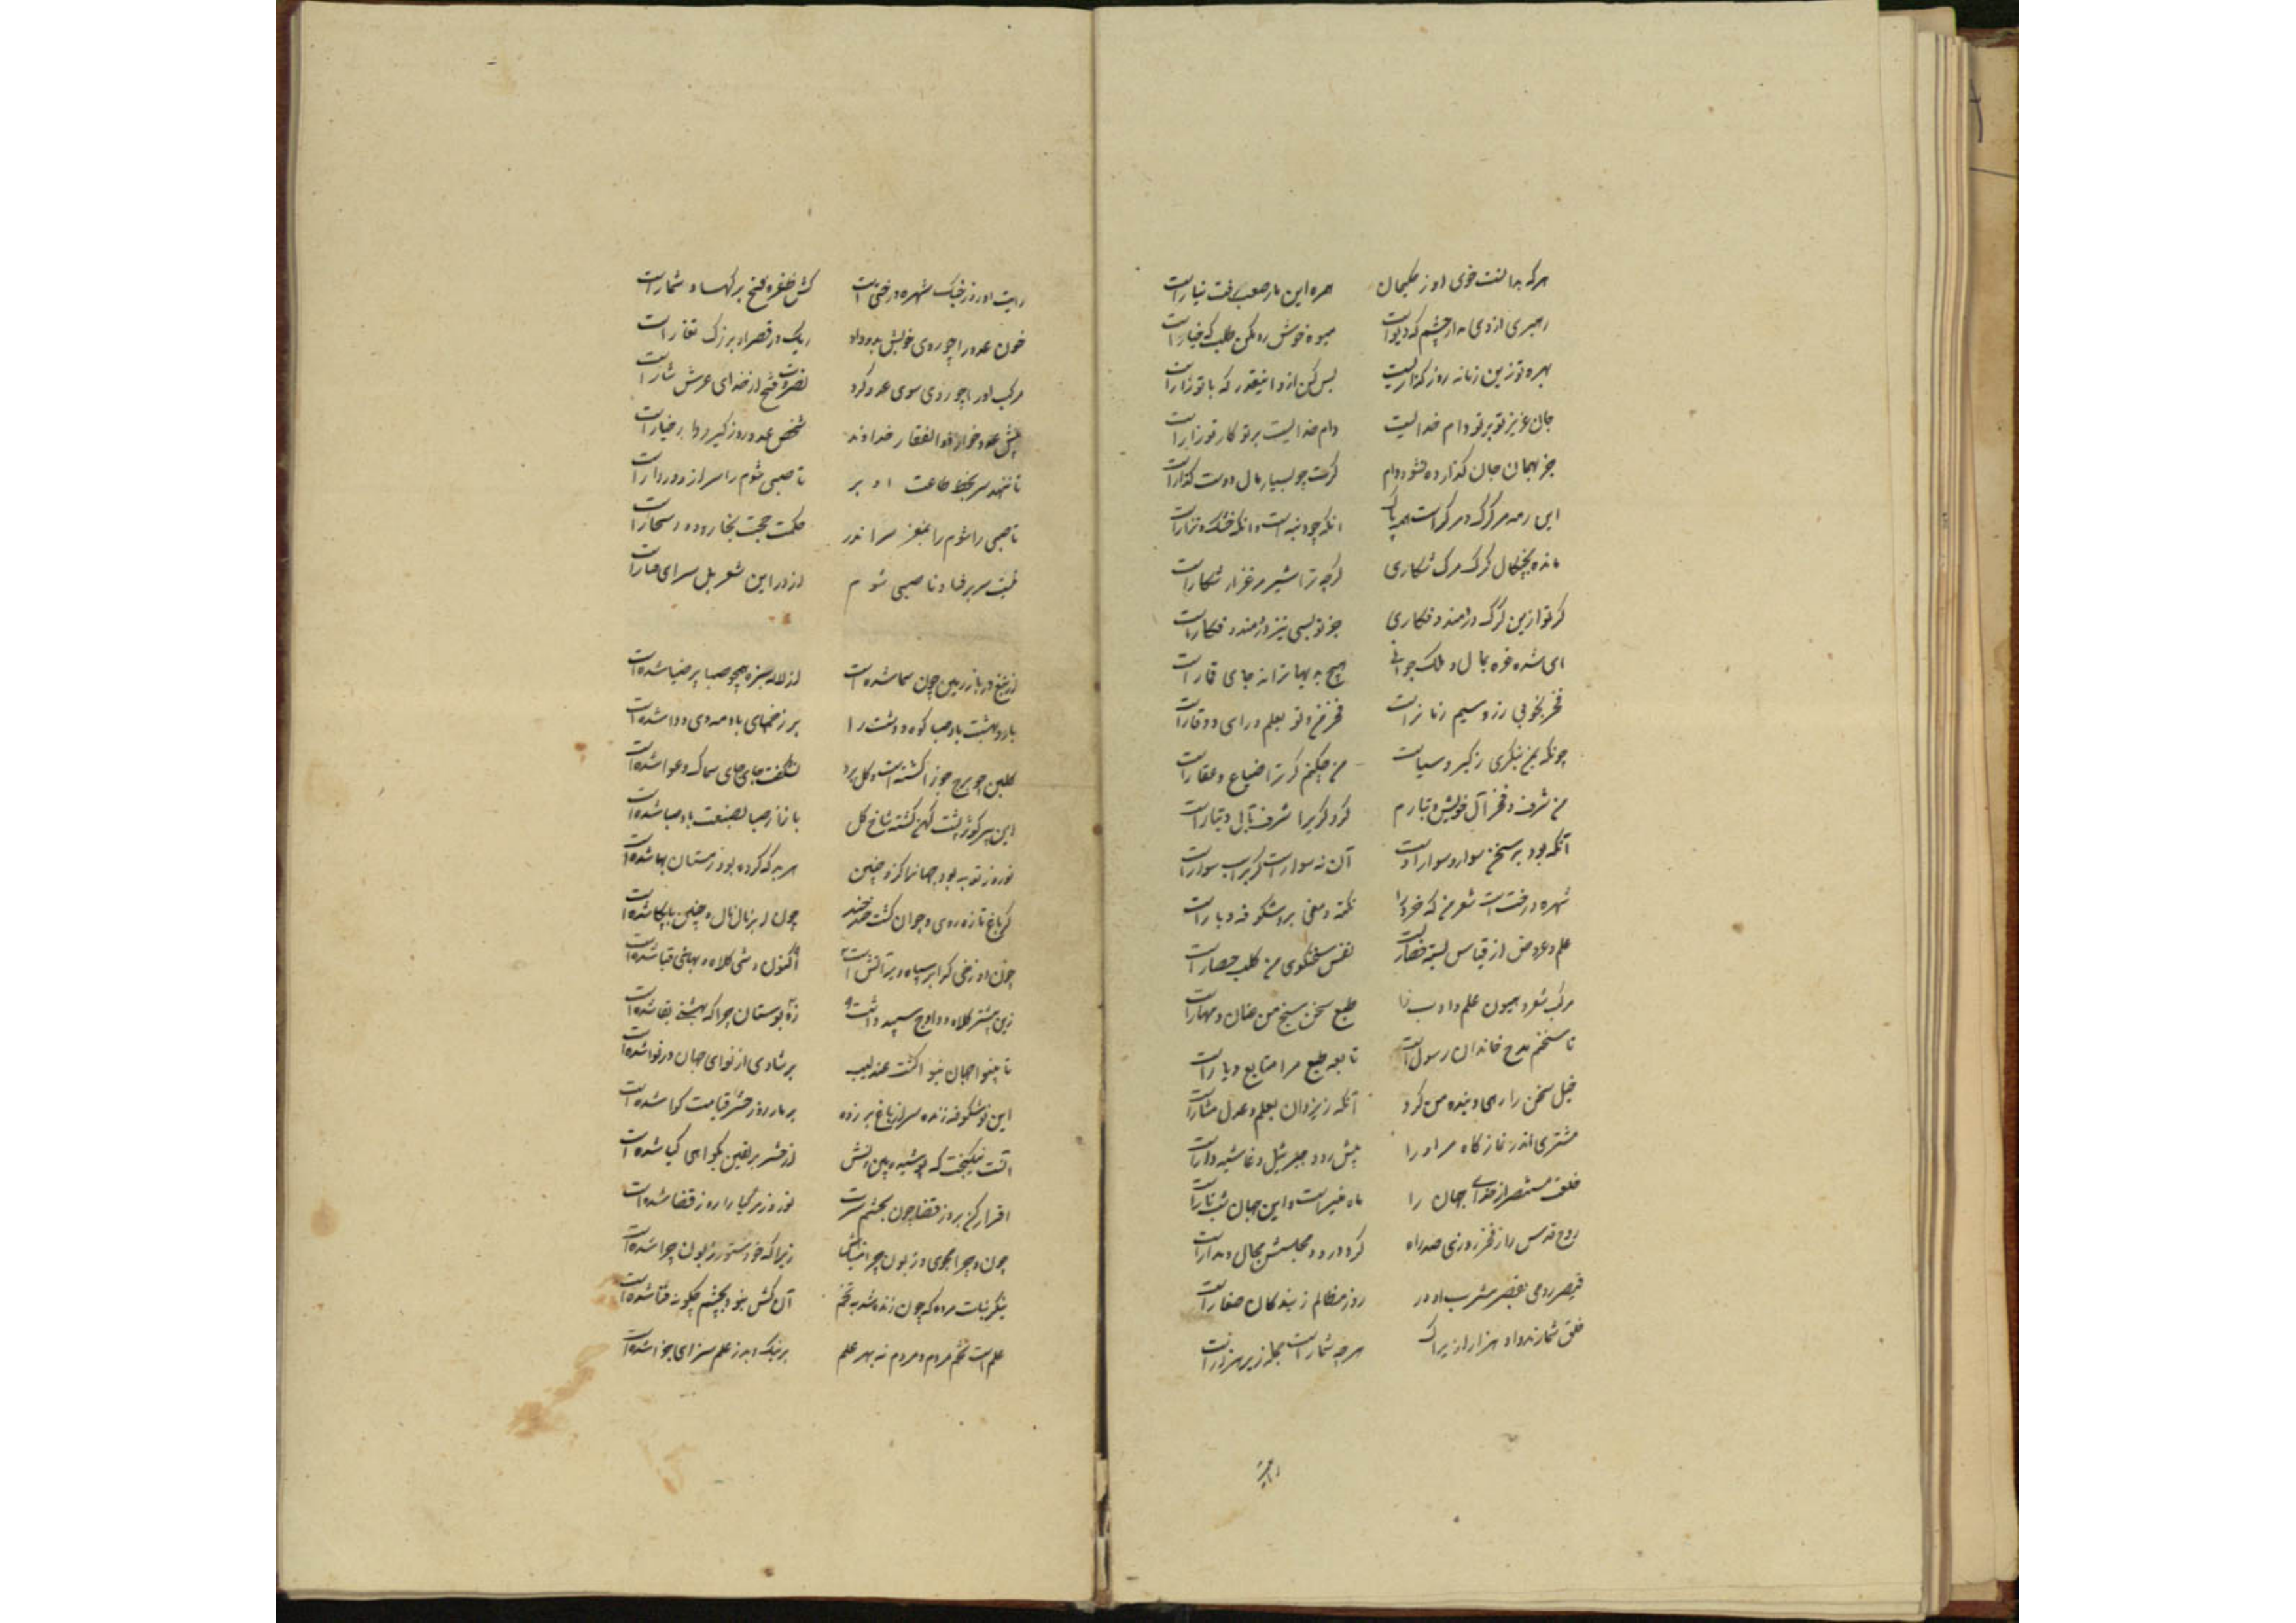 هرکه بدانست خوی او ز حکیمان همره این مار صعب رفت نیارست
رهبری از وی مدار چشم که دیوست میوه خوش زو مکن طلب که خیارست
بهره تو زین زمانه روز گذاریست بس کن ازو اینقدر که با تو زارست
جان عزیز تو بر تو وام خدائیست وام خدائیست بر تو کار تو زارست
جز بهمان جان گذارده نشود وام گرت چه بسیار مال و دست گذارست
این رمه مر گرگ مرگ راست همه پاک آنکه چو دنبه است و آنکه خشک و نزارست
مانده بچنگال گرگ مرگ شکاری گرچه ترا شیر مرغزار شکارست
گر تو ازین گرگ دردمند و فکاری جز تو بسی نیز دردمند و فکارست
ای شده غره بمال و ملک و جوانی هیچ به بیها ترا نه جای قارست
فخر بخوبی و زر و سیم زنانراست فخر من و تو بعلم و رای و وقارست
چونکه بمن ننگری ز کبر و سیاست من چکنم گر ترا ضیاع و عقارست
من شرف و فخر آل خویش و تبارم گر دگریرا شرف بآل و تبارست
آنکه بود بر سخن سوار سوار اوست آن نه سوارست که بر اسب سوارست
شهره درختست شعر من که خرد را نکته و معنی برو شکوفه و بارست
علم و عروض از قیاس بسته حصاریست نفس سخنگوی من کلید حصارست
مرکب شعر و هیون علم و ادب را طبع سخن سنج من عنان و مهارست
تا سخنم مدح خاندان رسولست تابعه طبع مرا متابع و یارست
خیل سخن را رهی و بنده من کرد آنکه ز یزدان بعلم و عدل مشارست
مشتری اندر نمازگاه مر او را پیش رو و جبرئیل غاشیه دارست
خلق مستنصر از خدای جهان را ماه منیرست و این جهان شب تارست
روح قدس را ز فخر روزی صد راه گرد در و مجلسش مجال و مدارست
قیصر رومی بقصر مشرب او در روز مظالم ز بندگان صغارست
خلق شمارند و او هزار ازیراک هر چه شمارست جمله زیر هزارست
رایت او روز جنگ شهره درختیست کش ظفر و فتح برگها و شمارست
خون عدو را چو روی خویش بدو داد ریگ در قصر او بزرگ تغارست
مرکب او را چو روی سوی عدو کرد نصرت و فتح از خدای عرش نثارست
پیش عدو خوار ذوالفقار خداوند شخص عدو روز گیر و دار خیارست
تا ننهد سر بخط طاعت او بر ناصبی شوم را سر از در دارست
ناصبی شوم را بمغز سر اندر حکمت حجت بخار و دود و شخارست
نیست سر پر فساد ناصبی شوم از در این شعر بل سزای فسارست
از لاله سبزه همچو صبا پر ضیا شده است
بارد بهشت باد صبا کوه و دشت را بر زخمهای باد مه دی دوا شده است
گلبن چو برج جوزا گشته است و گل برو بشکفت جای جای سماک و عوا شده است
این پیر کوژپشت کهن گشته شاخ گل باز از صبا بصنعت باد صبا شده است
نوروز توبه بود جهانرا کزو چنین هر بد که کرده بود زمستان بها شده است
گر باغ تازه روی و جوان گشت خندخند چون ابر نال نال و چنین بابکا شده است
چون دوزخی که ابر سیاه و پر آتش است اکنون وشی کلاه و بهائی قبا شده است
زین پیشتر کلاه و دواج سپید داشت زی بوستان چرا که بهشتی بقا شده است
تا بینوا جهان بنوا گشت عندلیب پر شادی از نوای جهان در نوا شده است
این نوشکوفه زنده سر از باغ بر زده بر ما روز حشر و قیامت گوا شده است
آتش نینگیخت که پوشیده بین تنش از حشر بر یقین بگواهی گیا شده است
اقرار کن بروز قضا چون بچشم سرت نوروز مر گیا را روز قضا شده است
چون و چرا بجوی و زبون چرا مباش زیرا که خر و ستور زبون چرا شده است
بنگر نبات مرده که چون زنده شد به تخم آن کش نبود تخم چگونه فنا شده است
علم است تخم مردم و مردم نه بهر علم بر نیک و بد ز علم سزای جزا شده است
رایت